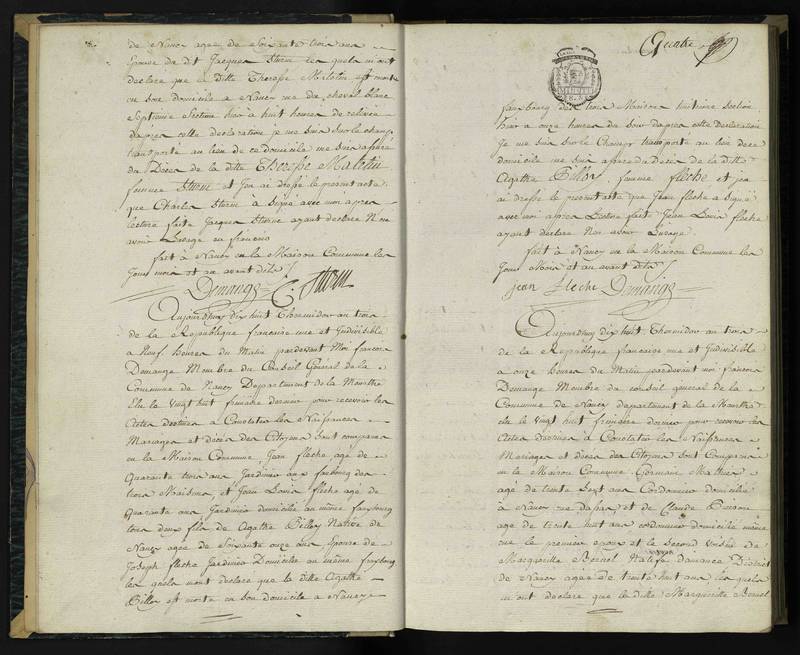 de Nancy agée de Soixante trois ans
Epouse du dit Jacques Sturm les quels m'ont
declaré que la ditte Theresse Malotin est morte
en Son domicile a Nancy rue du cheval blanc
Septieme Section hier à huit heures de relevée
dapres cette declaration je me suis Sur le champ
transporté au lieu de ce domicile me suis assuré
du Décés de la ditte Theresse Malotin
femme Sturm et j'en ai dressé le present acte
que Charles Sturm a Signé avec moi apres
lecture faite Jacques Sturm ayant declaré N'en
avoir L'usage en francois
fait à Nancy en la Maison Commune les
Jour mois et an avant dits
Demange C. Sturm
Aujourdhuy dix huit Thermidor an trois
de la Republique francaise une et Indivisible
a Neuf heures du Matin pardevant Moi francois
Demange Membre du Conseil Général de la
Commune de Nancy Département de la Meurthe
Elu le vingt huit frimaire dernier pour recevoir les
Actes destinés à Constater les Naissances
Mariages et décés des Citoyens Sont comparus
en la Maison Commune, Jean fleche agé de
Quarante trois ans Jardinier aux faubourg des
trois Maisons, et Jean Louis fleche agé de
Quarante ans Jardinier domicilié au même fauxbourg
tous deux fils de Agathe Billoy Native de
Nancy agée de Soixante onze ans Epouse de
Joseph fleche Jardinier Domicilié au même fauxbourg
les quels mont declaré que la ditte Agathe
Billoy est morte en Son domicile a Nancy
Quatre
fauxbourg des trois Maisons huitieme Section
hier a onze heures du Soir dapres cette Declaration
Je me suis Sur le Champ transporté au lieu de ce
domicile me suis assuré du Décés de la ditte
Agathe Billoy femme fleche et j'en
ai dressé le present acte que Jean fleche a Signé
avec moi apres Lecture fait Jean Louis fleche
ayant declaré Non avoir L'usage.
fait à Nancy en la Maison Commune les
Jour Mois et an avant dits
jean fleche Demange
Aujourdhuy dix huit Thermidor an trois
de la Republique francaise une et Indivisible
a onze heures du Matin pardevant moi francois
Demange Membre du conseil général de la
Commune de Nancy département de la Meurthe
élu le vingt huit frimaire dernier pour recevoir les
Actes destinés à Constater les Naissances
Mariages et décés des Citoyens Sont Comparus
en la Maison Commune Germain Mathieu
agé de trente Sept ans Cordonnier domicilié
à Nancy et de Claude
agé de trente huit ans cordonnier domicilié même
rue le premier epoux et le Second voisin de
Marguerite Native damance District
de Nancy agée de trente huit ans les quels
m'ont declaré que la ditte Marguerite